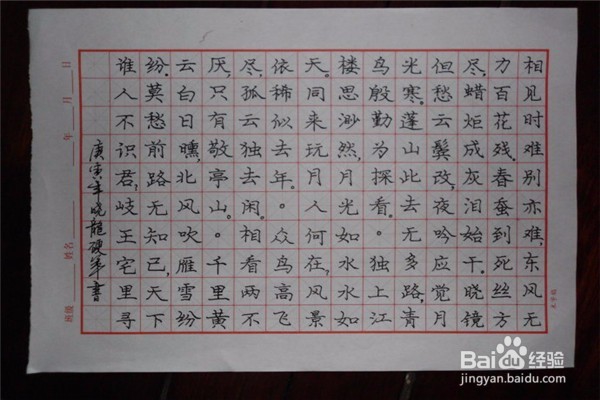 相见时难别亦难,东风无
力百花残。春蚕到死丝方
尽,蜡炬成灰泪始干。晓镜
但愁云鬓改,夜吟应觉月
光寒。蓬山此去无多路,青
鸟殷勤为探看。独上江
楼思渺然,月光如水水如
天。同来玩月人何在,风景
依稀似去年。众鸟高飞
尽,孤云独去闲。相看两不
厌,只有敬亭山。千里黄
云白日曛,北风吹雁雪纷
纷。莫愁前路无知己,天下
谁人不识君,岐王宅里寻
庚寅年晓龍硬筆書
班级 姓名 年 月 日
Baidu 经验
jingyan.baidu.com